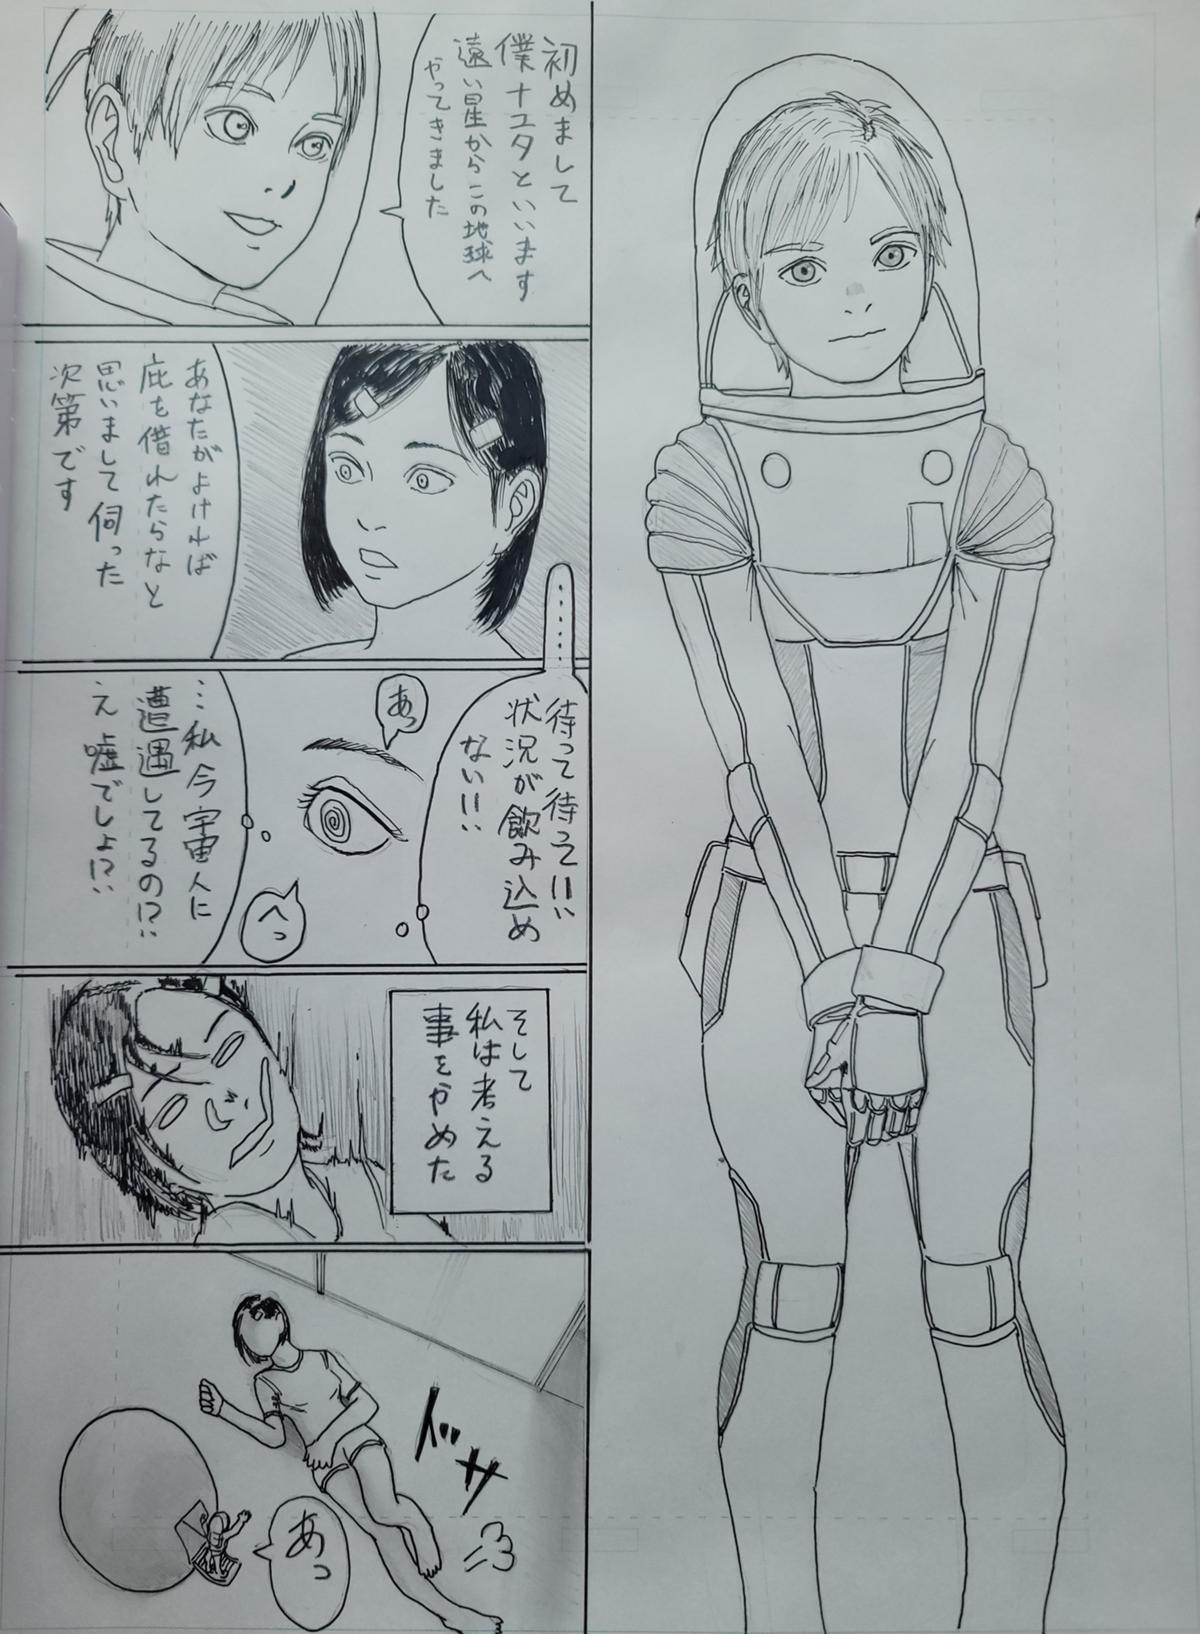 初めまして
僕ナユタといいます
遠い星からこの地球へ
やってきました
あなたがよければ
庇を借れたらなと
思いまして伺った
次第です
……
待って待って!!
状況が飲み込め
ない!!
あっ
…私今宇宙人に
遭遇してるの!?
え嘘でしょ!?
へっ
そして
私は考える
事をやめた
ドサッ
あっ